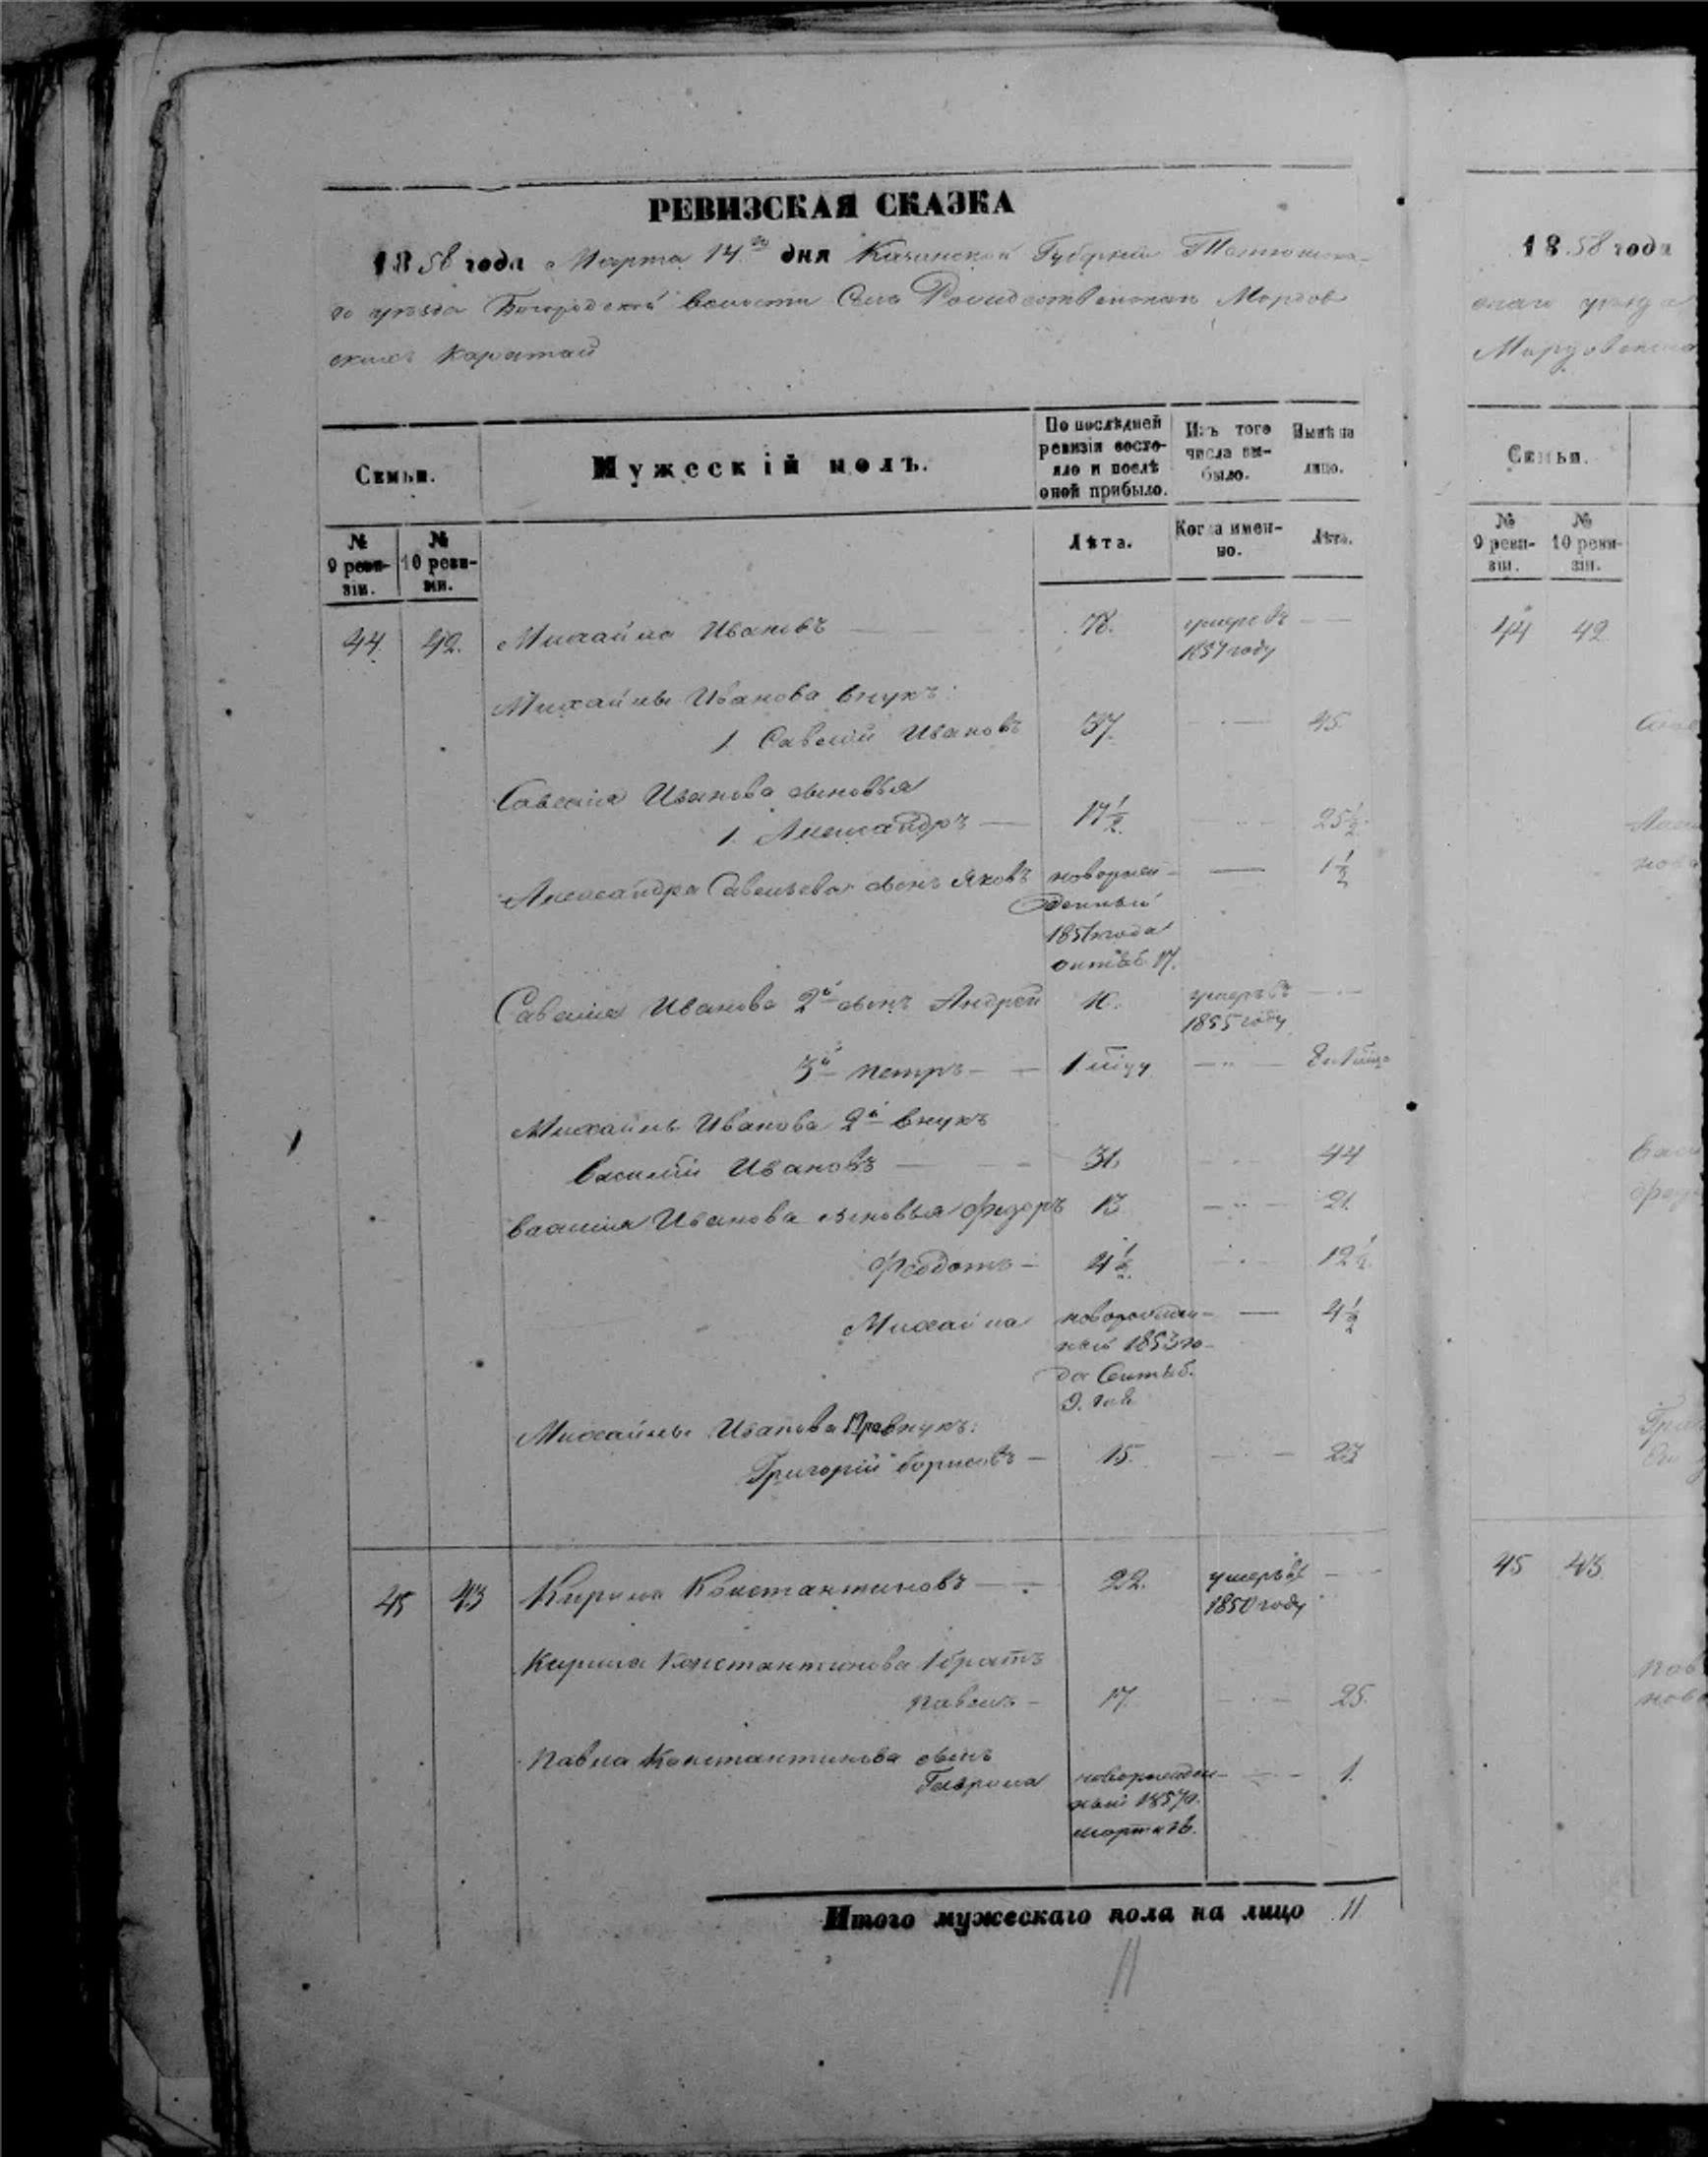 РЕВИЗСКАЯ СКАЗКА
1858 года Марта 14го дня Казанской Губерніи Тетюшска-
го уѣзда Богородской волости Села Рождественскаго Мордов
скихъ Каратай
Семьи.
Мужескій полъ.
По послѣдней ревизіи состо-
яло и послѣ
оной прибыло.
Изъ того
числа вы-
было.
Нынѣ на
лицо.
№
9 реви-
зіи.
№
10 реви-
зіи.
Лѣта.
Когда имен-
но.
Лѣта.
44. 42. Михайла Ивановъ 78. умеръ въ
1857 году
Михайлы Иванова внукъ:
1. Савелій Ивановъ 37. 45.
Савелія Иванова сыновья
1. Александръ 17 1/2 25 1/2
Александра Савельева сынъ Яковъ новорож-
денный 1 1/2
года
октяб. 17.
Савелія Иванова 2й сынъ Андрей умеръ въ
1855 году
3й Петръ
Михайлы Иванова 2й внукъ
Василій Ивановъ 44
Василія Иванова сыновья Федоръ 13 21.
Федотъ 4 1/2 12 1/2
Михайла новорожден-
ный 1853 го-
да Сентяб. 4 1/2
Михайлы Иванова Правнукъ:
Григорій Борисовъ 15. 23
45 43 Кирила Константиновъ 22. умеръ въ
1850 году
Кирила Константинова 1 братъ
Павелъ 17. 25.
Павла Константинова сынъ
Гаврила новорожден-
ный 1857 г.
марта 1.
Итого мужескаго пола на лицо 11
11
1858 года
44 42
45 43
Семьи.
№
9 реви-
зіи.
№
10 реви-
зіи.